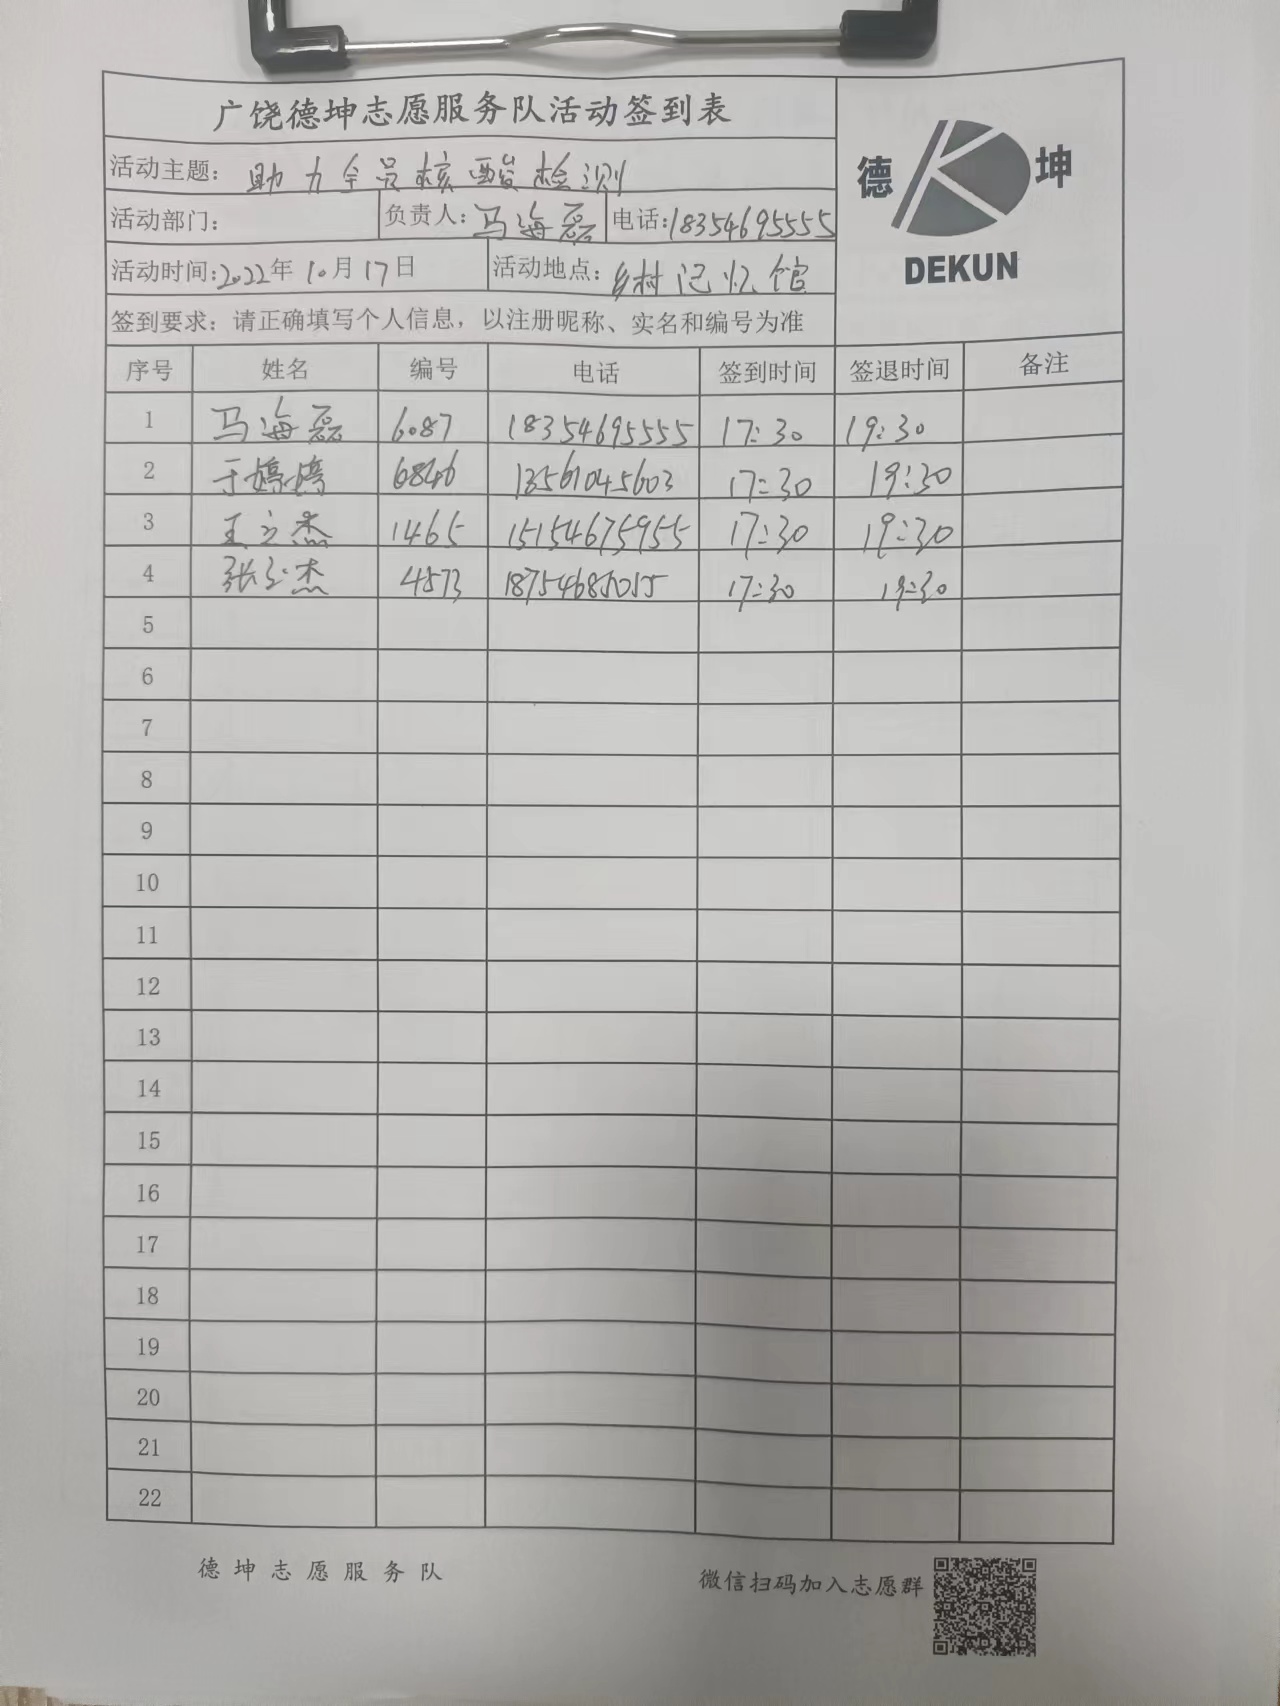 广饶德坤志愿服务队活动签到表
德 坤
DEKUN
活动主题：助力全员核酸检测
活动部门： 负责人：马海磊 电话：18354695555
活动时间：2022年10月17日 活动地点：乡村记忆馆
签到要求：请正确填写个人信息，以注册昵称、实名和编号为准
序号 姓名 编号 电话 签到时间 签退时间 备注
1 马海磊 6087 18354695555 17:30 19:30
2 于婷婷 6846 13561045603 17:30 19:30
3 王立杰 1465 15154675955 17:30 19:30
4 张玉杰 4573 18754685055 17:30 19:30
5
6
7
8
9
10
11
12
13
14
15
16
17
18
19
20
21
22
德坤志愿服务队 微信扫码加入志愿群